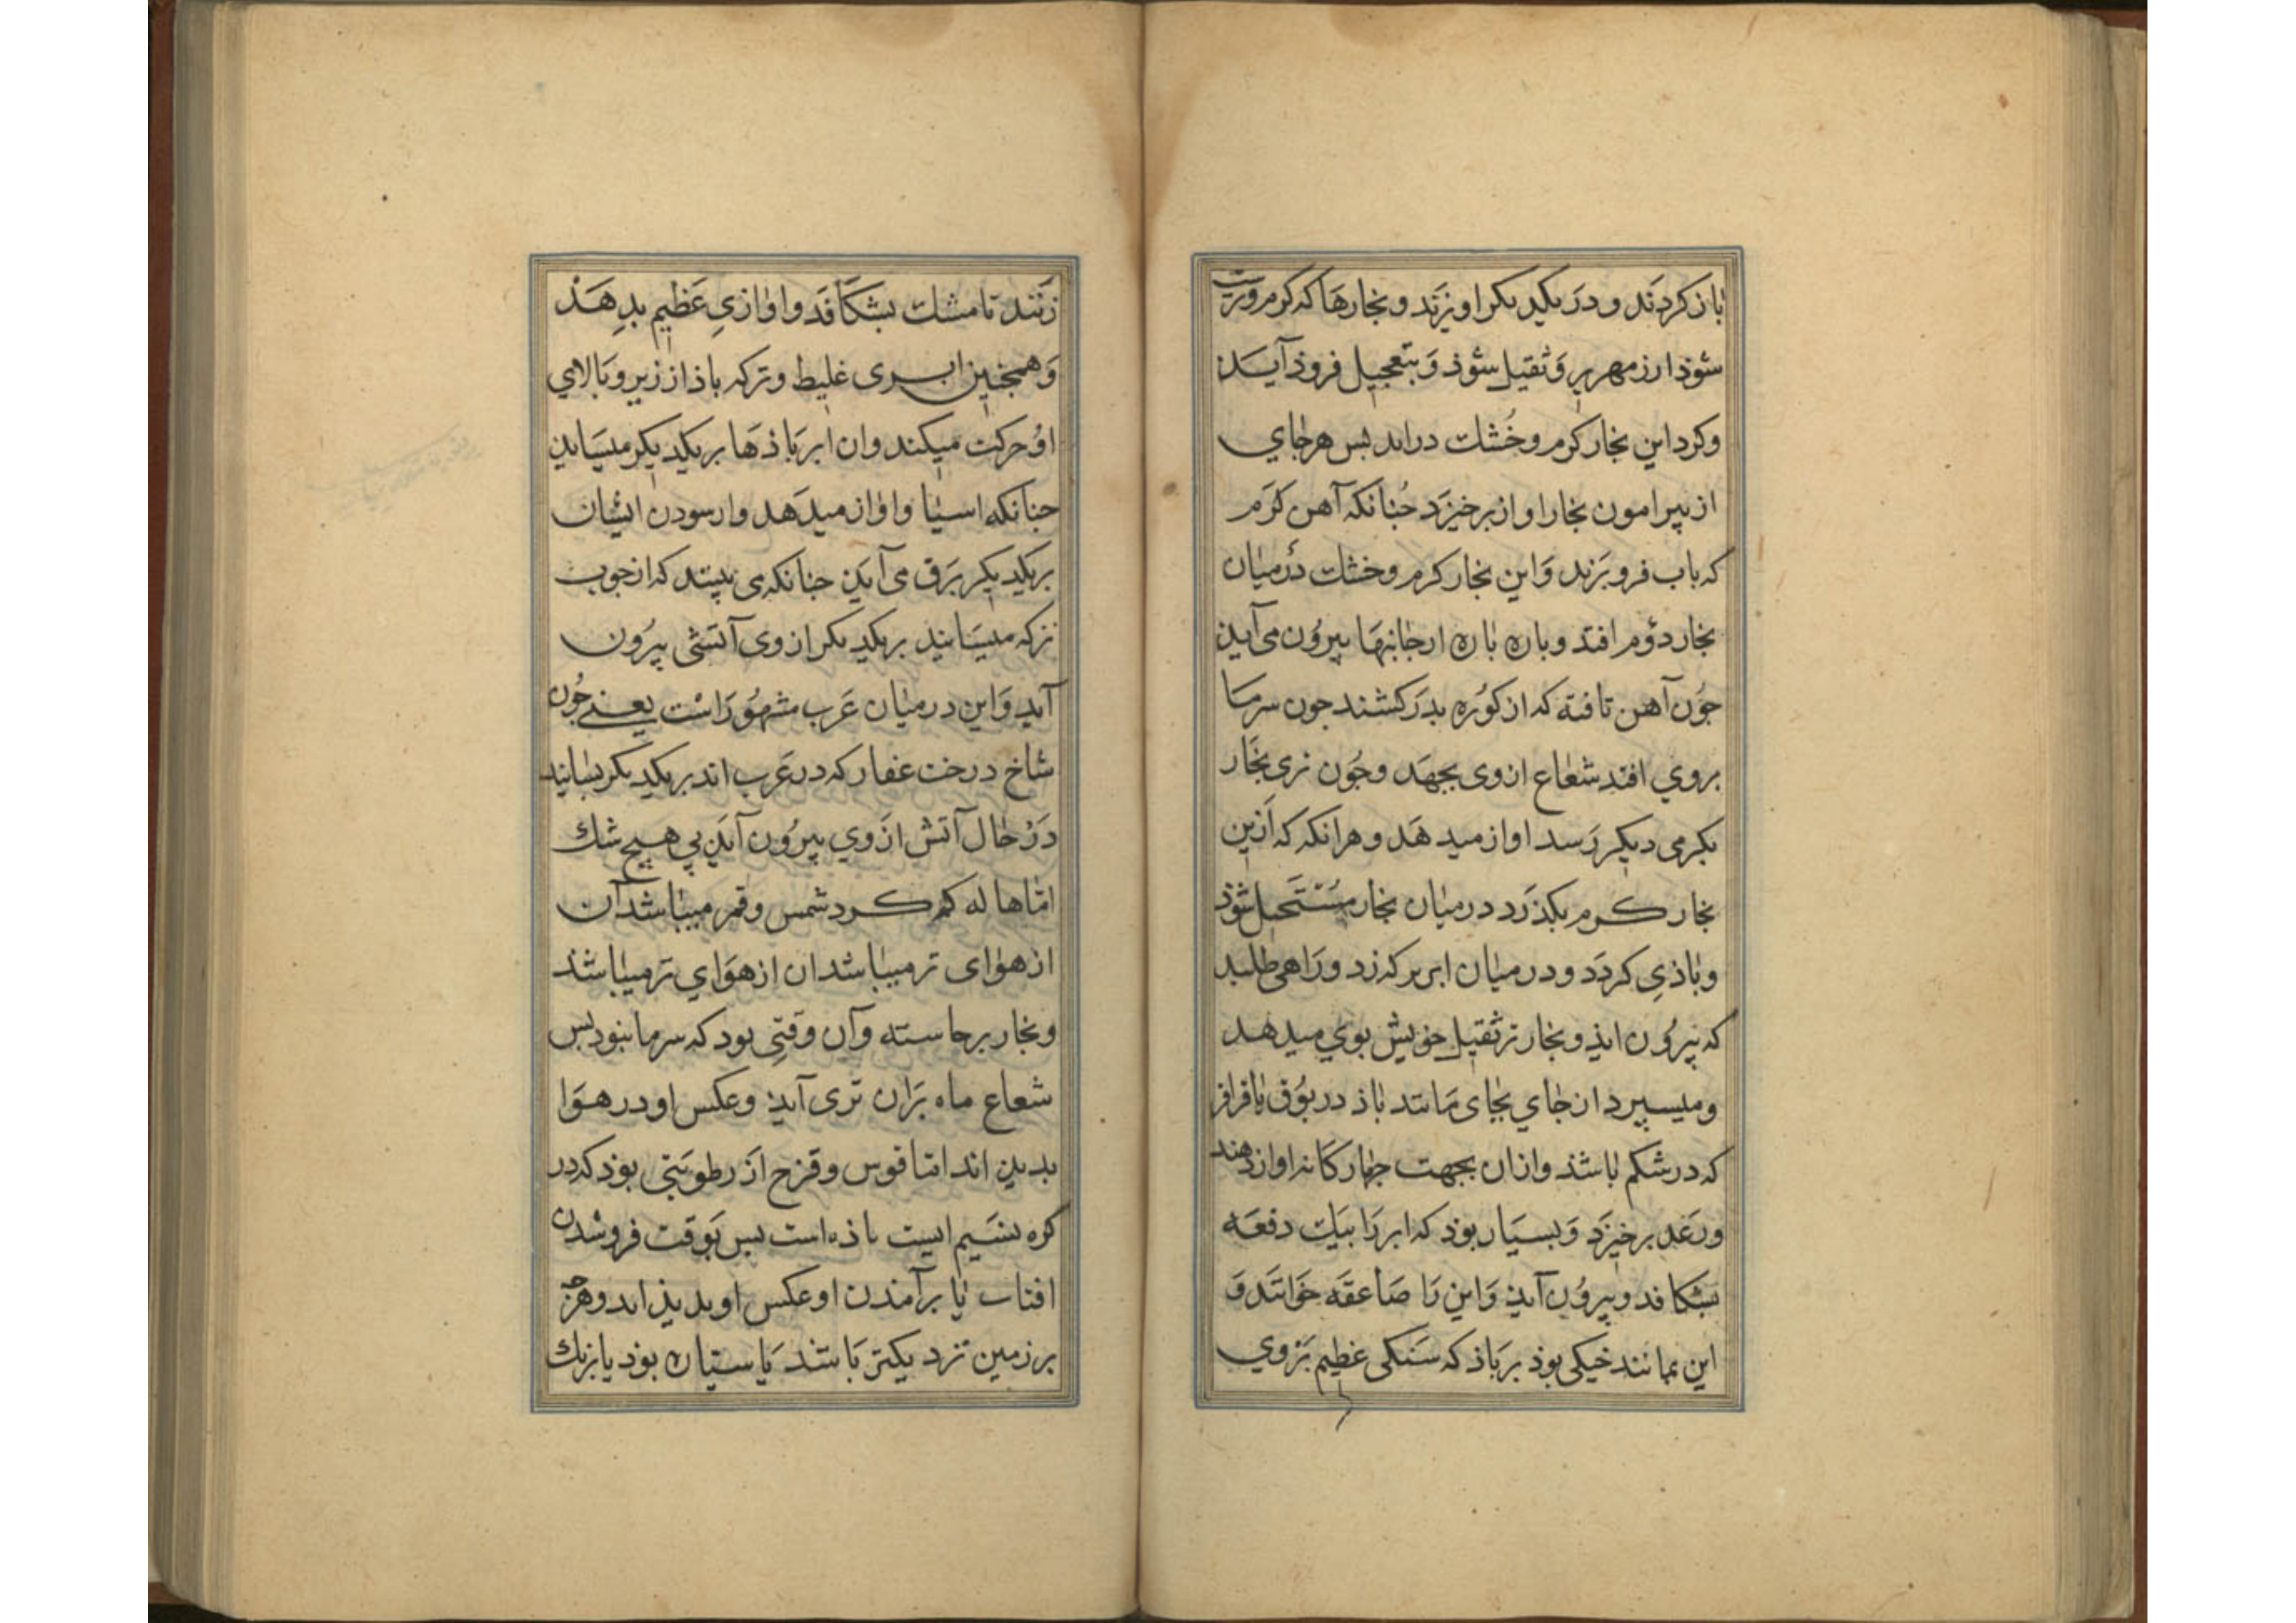 باز کردند و در یکدیکر اویزند و بخارها که کرم و تر
شوذ از زمهریر و ثقیل شوذ و بتعجیل فروذ آید
و کرد این بخار کرم و خشک دراید بس هر جای
از پیرامون بخار اواز برخیزد جنانکه آهن کرم
که باب فروبرند و این بخار کرم و خشک در میان
بخار دوم افتد و باره باره از جانبها بیرون می آید
جون آهن تافته که از کوره بدر کشند جون سرما
بروی افتد شعاع از وی بجهد و جون تری بخار
بکرمی دیکر رسد اواز میدهد و هرانکه که ازین
بخار کرم بکذرد در میان بخار مستحیل شوذ
و باذی کردد و در میان ابر بر که زد و راه می طلبد
که بیرون ایذ و بخار تر ثقیل خویش بوی میدهد
و میسپرد از جای بجای مانند باذ در بوق یا قراقر
که در شکم باشذ و ازان بجهت جهار کانه اواز دهند
و رعد برخیزد و بسیار بوذ که ابر را بیک دفعه
بشکافد و بیرون آید و این را صاعقه خوانند و
این بمانند خیکی بوذ بر باذ که سنکی عظیم بر وی
زنند تا مشک بشکافد و اوازی عظیم بدهد
و همجنین ابری غلیظ و تر که باذ از زیر و بالای
او حرکت میکند و ان ابر باذها بر یکدیکر میساید
جنانکه اسیا و اواز میدهد و از سودن ایشان
بر یکدیکر برق می آید جنانکه می بینند که از جوب
تر که میسایند بر یکدیکر از وی آتشی بیرون
آید و این در میان عرب مشهور است یعنی جون
شاخ درخت عفار که در عرب اند بر یکدیکر بسایند
در حال آتش از وی بیرون آید بی هیچ شک
اما هاله که کرد شمس و قمر میباشد آن
از هوای تر میباشد ان از هوای تر میباشذ
و بخار برخاسته و آن وقتی بود که سرما نبود بس
شعاع ماه بران تری آید و عکس او در هوا
بدین اند اما قوس و قزح از رطوبتی بوذ که در
کره نسیم ایست اذه است بس بوقت فروشدن
افتاب یا برآمذن او عکس او بدیذ اید و هرچه
بر زمین نزدیکتر باشد یا ستیاره بوذ یا بزرک